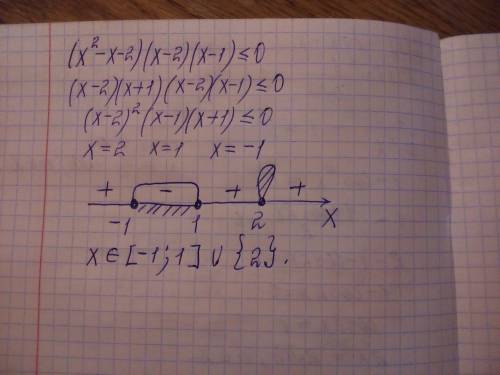 (x²-x-2)(x-2)(x-1)≤0
(x-2)(x+1)(x-2)(x-1)≤0
(x-2)²(x-1)(x+1)≤0
x=2 x=1 x=-1
+ - + +
-1 1 2 X
x∈[-1;1]∪{2}.